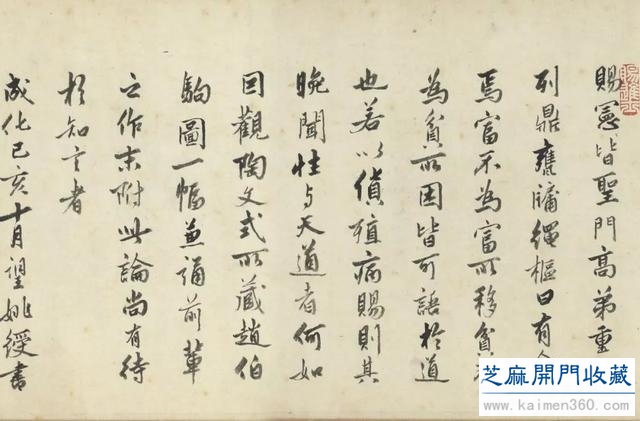 賜憲皆聖門高弟重
列鼎甕牖繩樞曰有
焉富不為富所移貧
為貧所困皆可語於道
也若以貨殖病賜則其
晚聞性与天道者何如
因觀陶文式所藏趙伯
駒圖一幅兼誦前輩
之作末附此論尚有待
於知言者
成化己亥十月望姚綬書
芝麻開門收藏
www.kaimen360.com